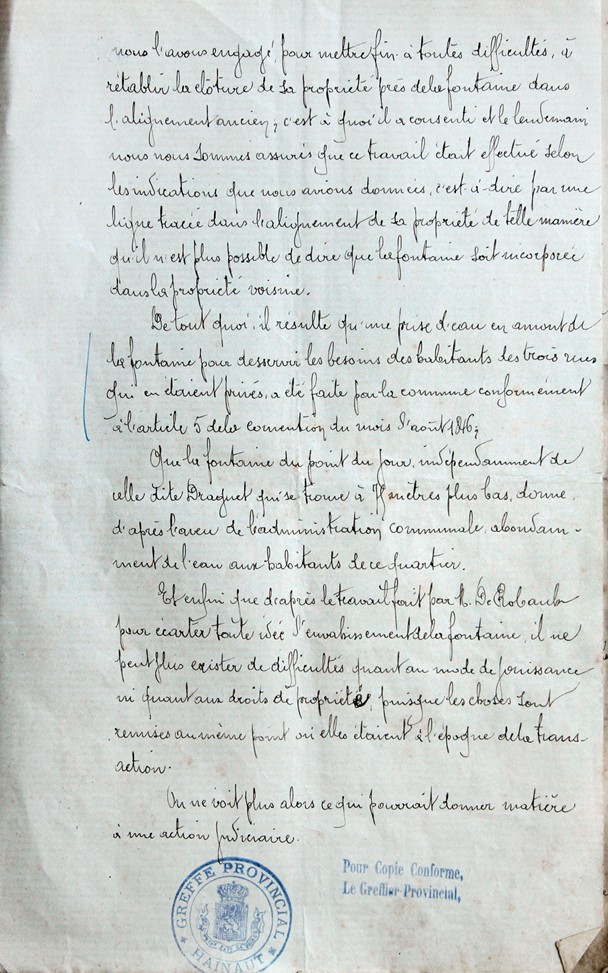 nous l'avons engagé, pour mettre fin à toutes difficultés, à
rétablir la clôture de sa propriété près de la fontaine dans
l'alignement ancien; c'est à quoi il a consenti et le lendemain
nous nous sommes assurés que ce travail était effectué selon
les indications que nous avions données, c'est-à-dire par une
ligne tracée dans l'alignement de sa propriété de telle manière
qu'il n'est plus possible de dire que la fontaine soit incorporée
dans la propriété voisine.
De tout quoi, il résulte qu'une prise d'eau en amont de
la fontaine pour desservir les besoins des habitants des trois rues
qui en étaient privés, a été faite par la commune conformément
à l'article 5 de la convention du mois d'août 1846;
Que la fontaine du point du jour, indépendamment de
celle dite Draguet qui se trouve à mètres plus bas, donne,
d'après l'aveu de l'administration communale, abondam-
ment de l'eau aux habitants de ce quartier.
Et enfin que d'après le travail fait par M. De Robaulx
pour écarter toute idée d'envahissement de la fontaine, il ne
peut plus exister de difficultés quant au mode de jouissance
ni quant aux droits de propriété, puisque les choses sont
remises au même point où elles étaient à l'époque de la trans-
action.
On ne voit plus alors ce qui pourrait donner matière
à une action judiciaire.
Pour Copie Conforme,
Le Greffier Provincial,
GREFFE PROVINCIAL
HAINAUT